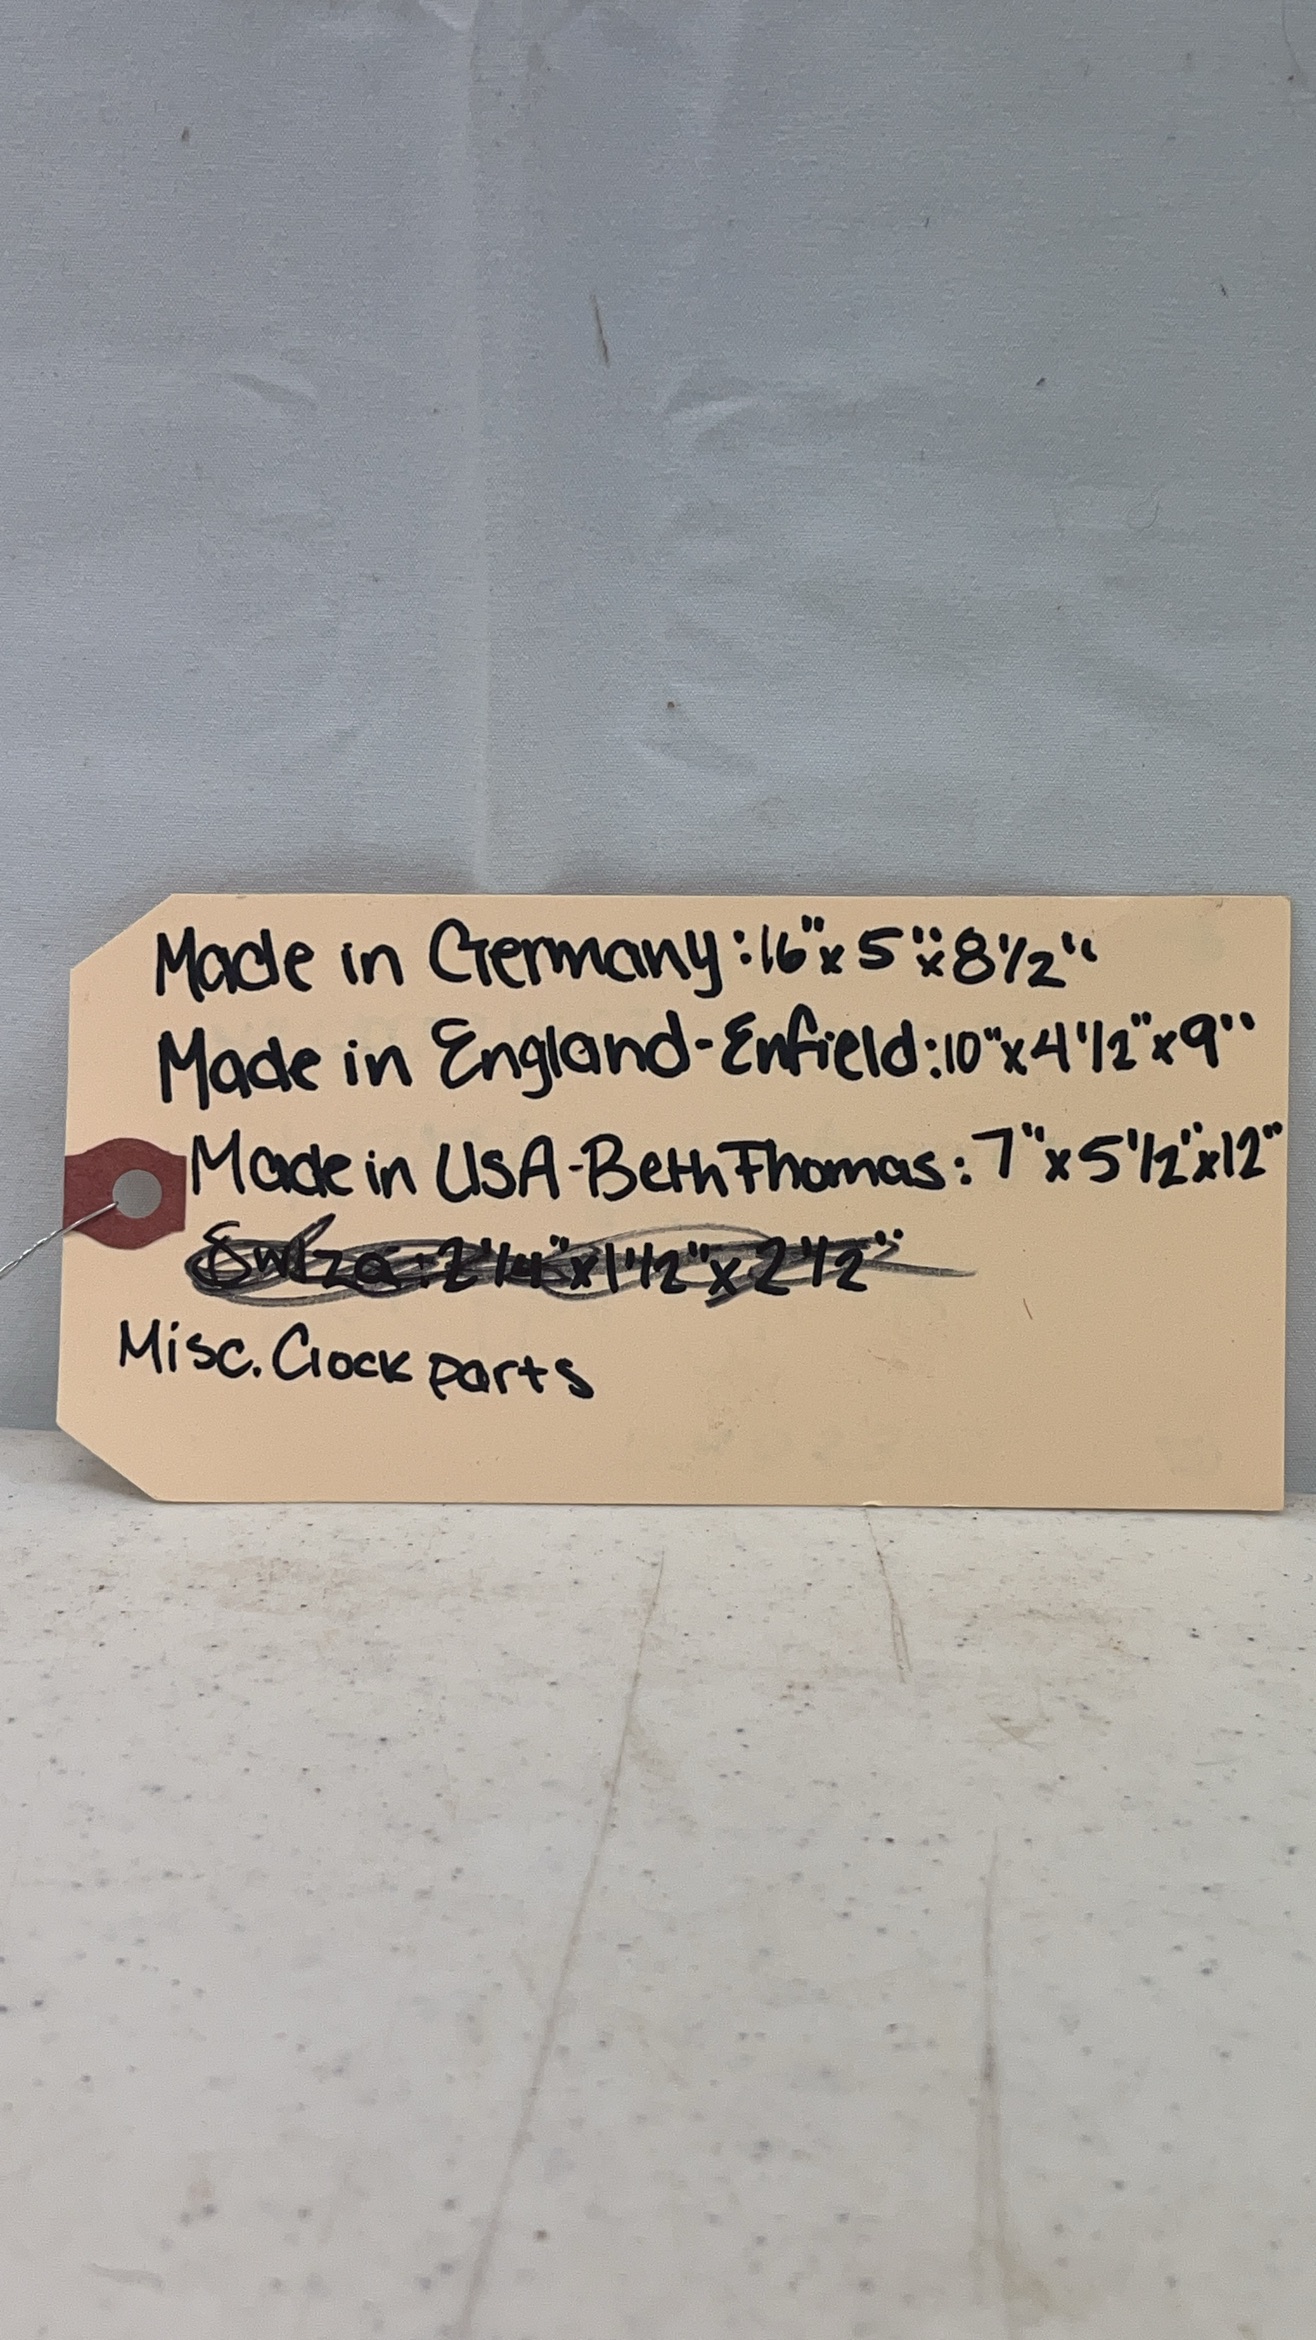 Made in Germany: 16" x 5" x 8 1/2"
Made in England-Enfield: 10" x 4 1/2" x 9"
Made in USA-Beth Thomas: 7" x 5 1/2" x 12"
Swiza: 2 1/4" x 1 1/2" x 2 1/2"
Misc. Clock parts